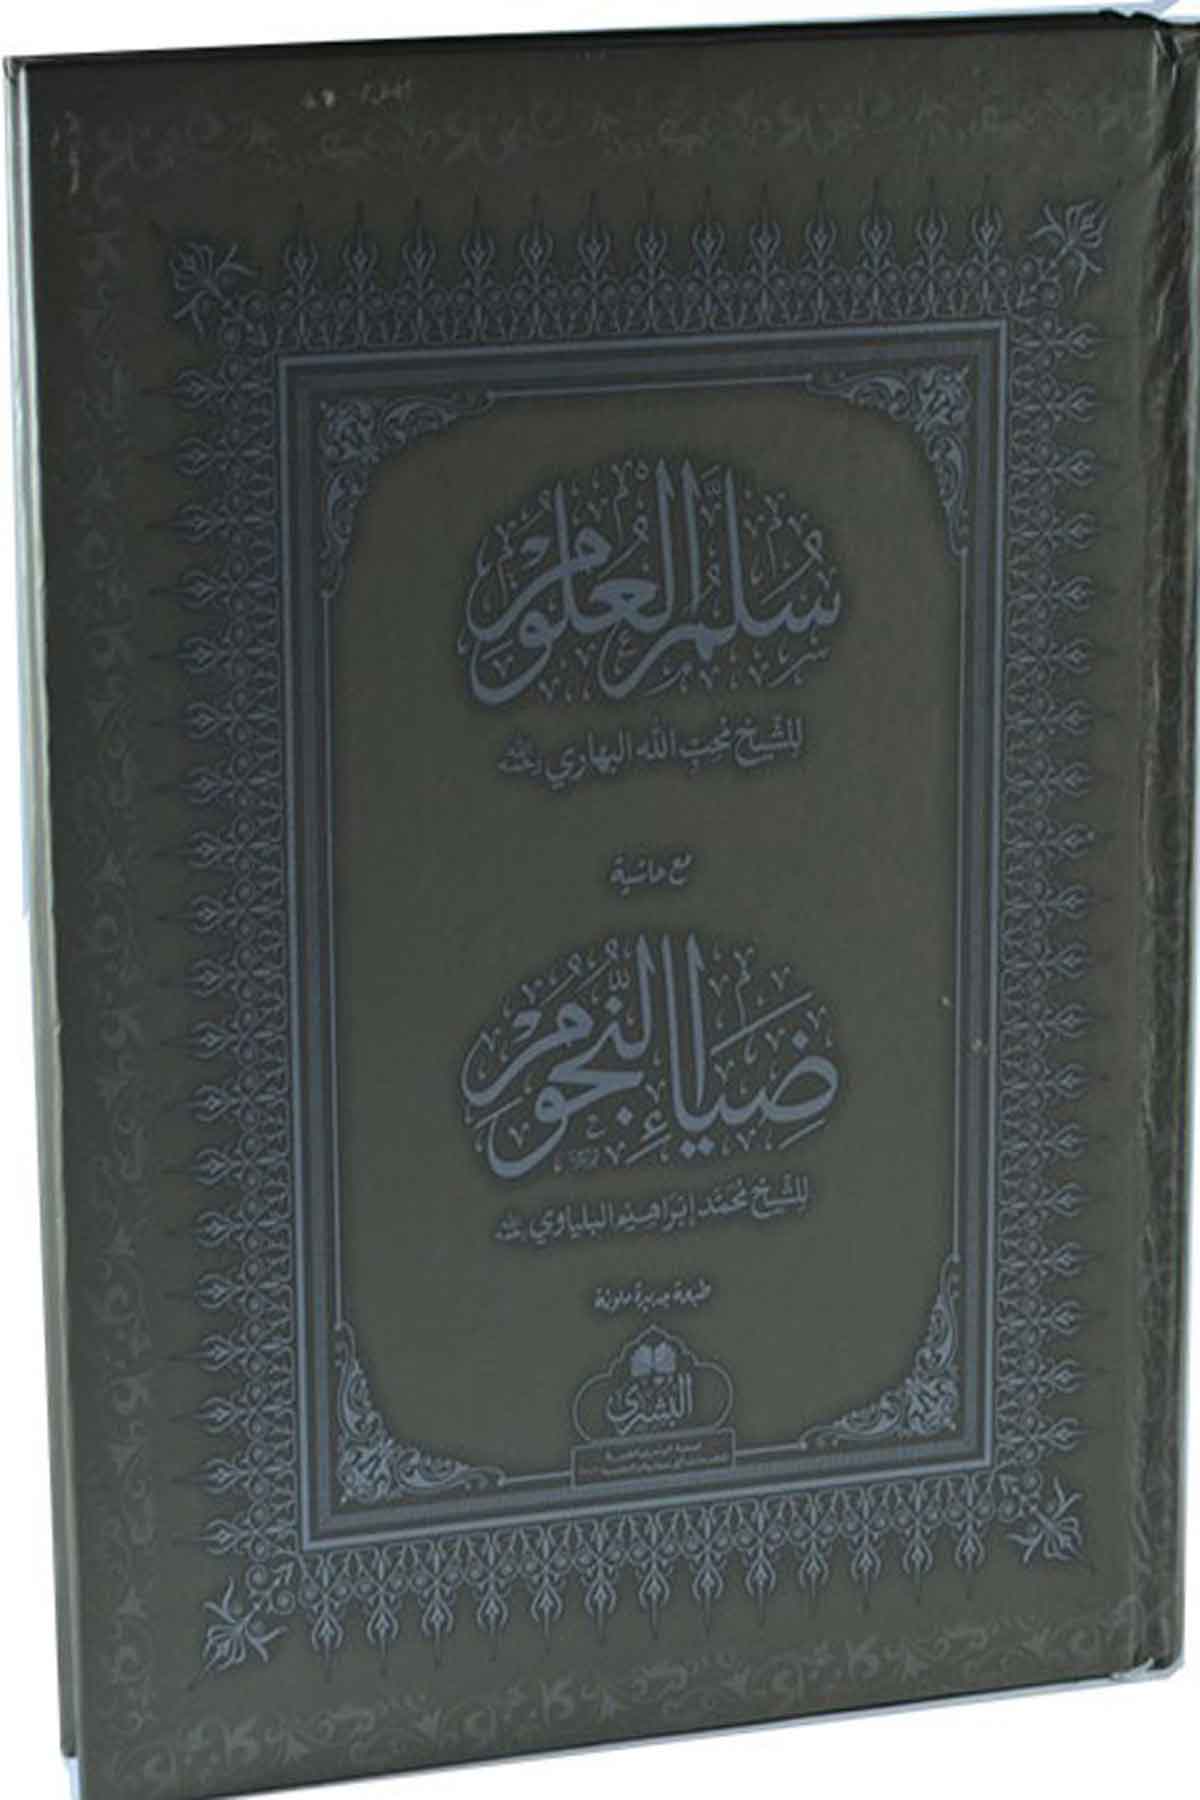 سُلَّمُ العُلُوْمِ
للشيخ محب الله البهاري رحمه الله
مع حاشية
ضِيَاءُ النُّجُوْمِ
للشيخ محمد إبراهيم البلياوي رحمه الله
طبعة جديدة ملونة
البشرى